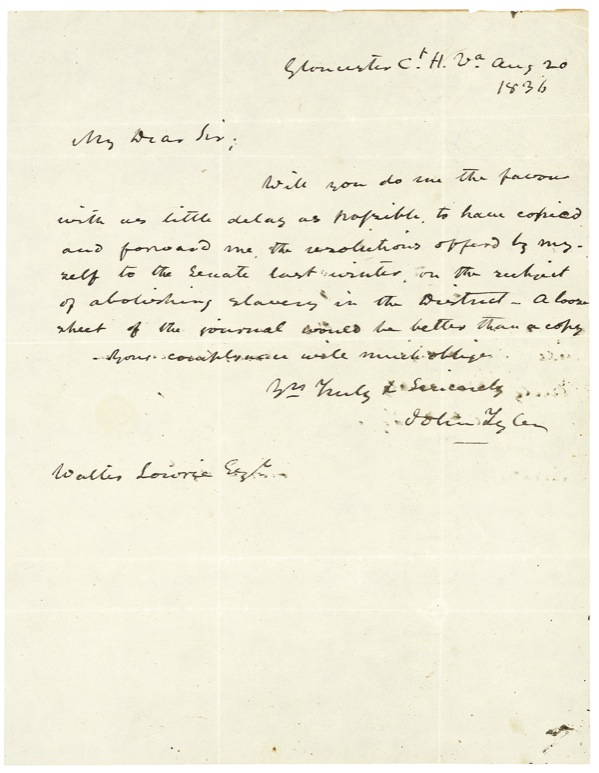 Gloucester Ct. H. Va Aug 20
1836
My Dear Sir;
Will you do me the favour
with as little delay as possible, to have copied
and forward me, the resolutions offerd by my-
self to the Senate last winter, on the subject
of abolishing slavery in the District - A loose
sheet of the journal would be better than a copy
- Your compliance will much oblige
Yrs Truly & Sincerely
John Tyler
Walter Lowrie Esqr.